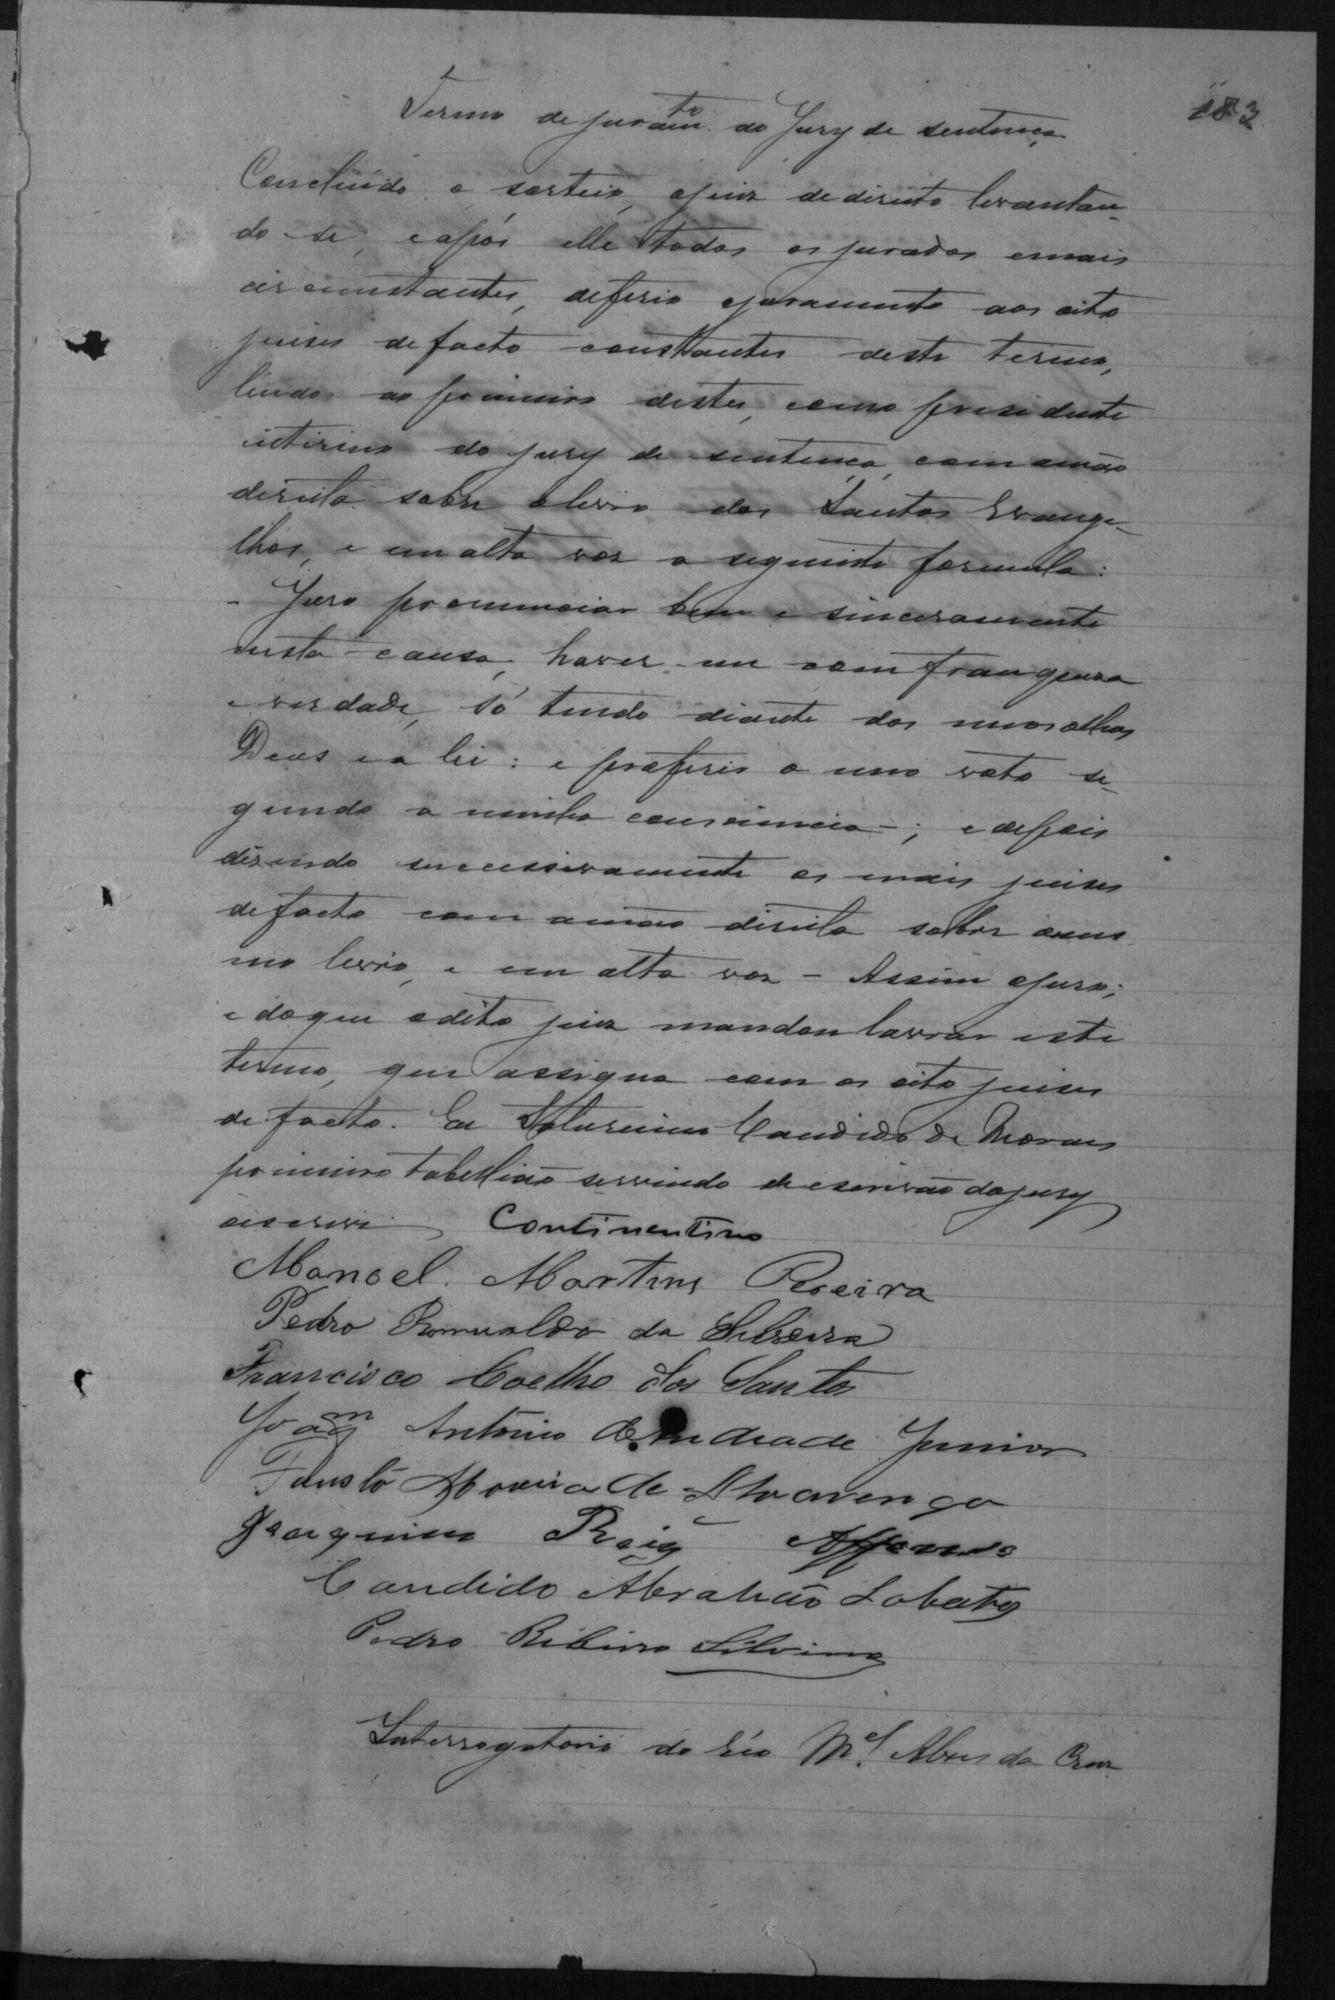 183
Termo de juramto do Jury de sentença
Concluido o sorteio, o juiz de direito levantan-
do-se, e após elle todos os jurados e mais
circumstantes, deferio o juramento aos oito
juises de facto constantes deste termo,
lendo ao primeiro destes, como presidente
interino do jury de sentença, com a mão
direita sobre o livro dos Santos Evange-
lhos, e em alta voz a seguinte formula:
- Juro pronunciar bem e sinceramente
nesta causa, haver-me com franqueza
e verdade, só tendo diante dos meus olhos
Deus e a lei: e proferir o meu voto se-
gundo a minha consciencia-; e depois
dizendo successivamente os mais juises
de facto com a mão direita sobre o mes
mo livro, e em alta voz - Assim o juro;
e do que o dito juiz mandou lavrar este
termo, que assigna com os oito juises
de facto. Eu Saturnino Candido de Moraes
primeiro tabellião servindo de escrivão do jury
o escrevi Continentino
Manoel Martins Pereira
Pedro Romualdo da Silveira
Francisco Coelho dos Santos
Joaqm Antonio de Andrade Junior
Fausto Moreira de Alvarenga
Joaquim Affonso
Candido Abrahão Lobato
Pedro Ribeiro Silvino
Interrogatorio do réo Mel Alves da Cruz